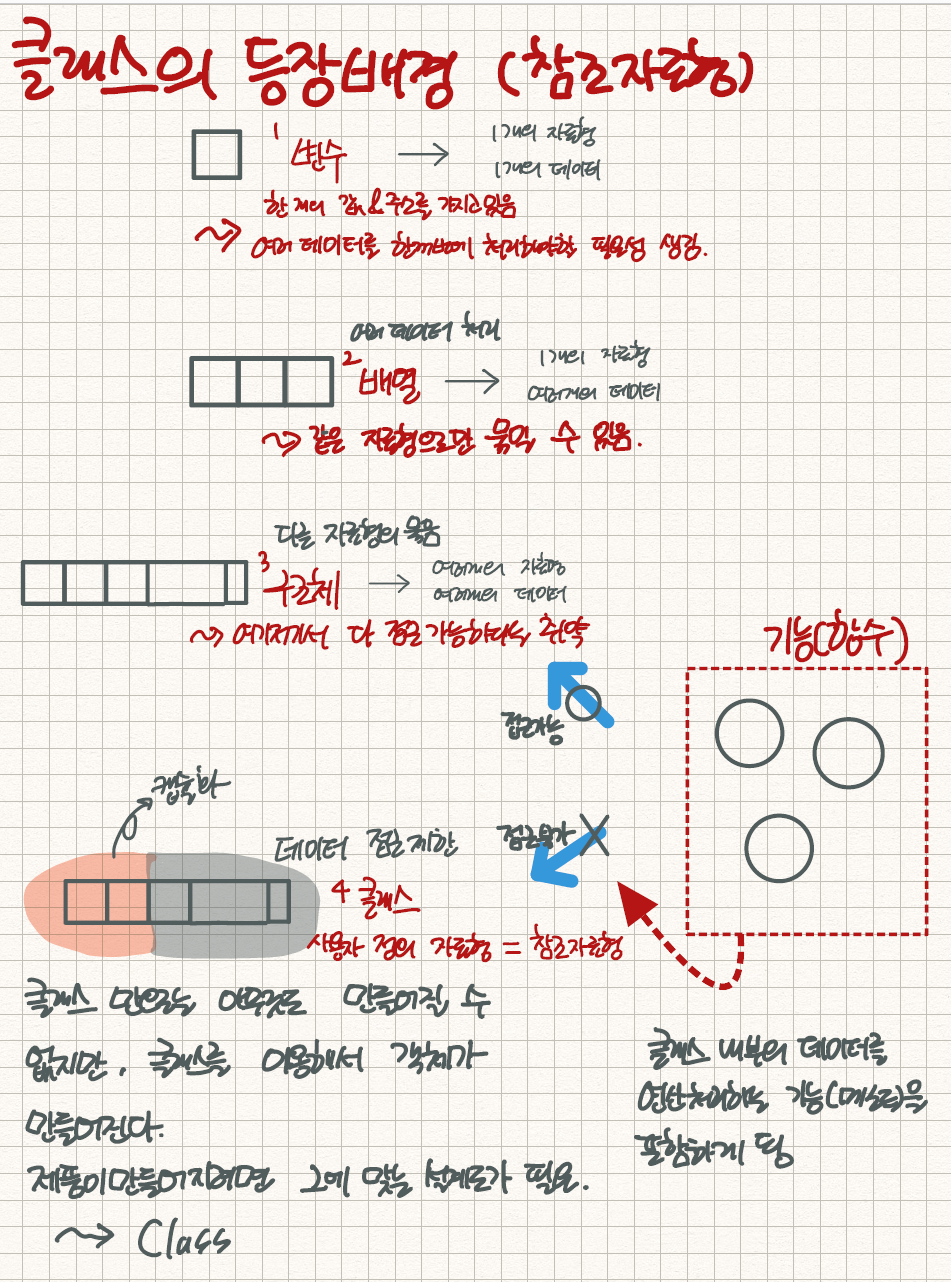 클래스의 등장배경 (참조자료형)
1 변수 → 1개의 자료형
1개의 데이터
한 개의 값&주소를 가지고 있음
여러 데이터를 한꺼번에 처리해야할 필요성 생김.
여러 데이터 처리
2 배열 → 1개의 자료형
여러개의 데이터
같은 자료형으로만 묶일 수 있음.
다른 자료형의 묶음
3 구조체 → 여러개의 자료형
여러개의 데이터
여기저기서 다 접근 가능하다는 취약
기능(함수)
접근가능
캡슐화
데이터 접근 제한
접근불가
4 클래스
사용자 정의 자료형 = 참조자료형
클래스 만으로는 아무것도 만들어질 수
없지만, 클래스를 이용해서 객체가
만들어진다.
제품이 만들어지려면 그에 맞는 설계도가 필요.
Class
클래스 내부의 데이터를
연산처리하는 기능(메소드)을
포함하게 됨